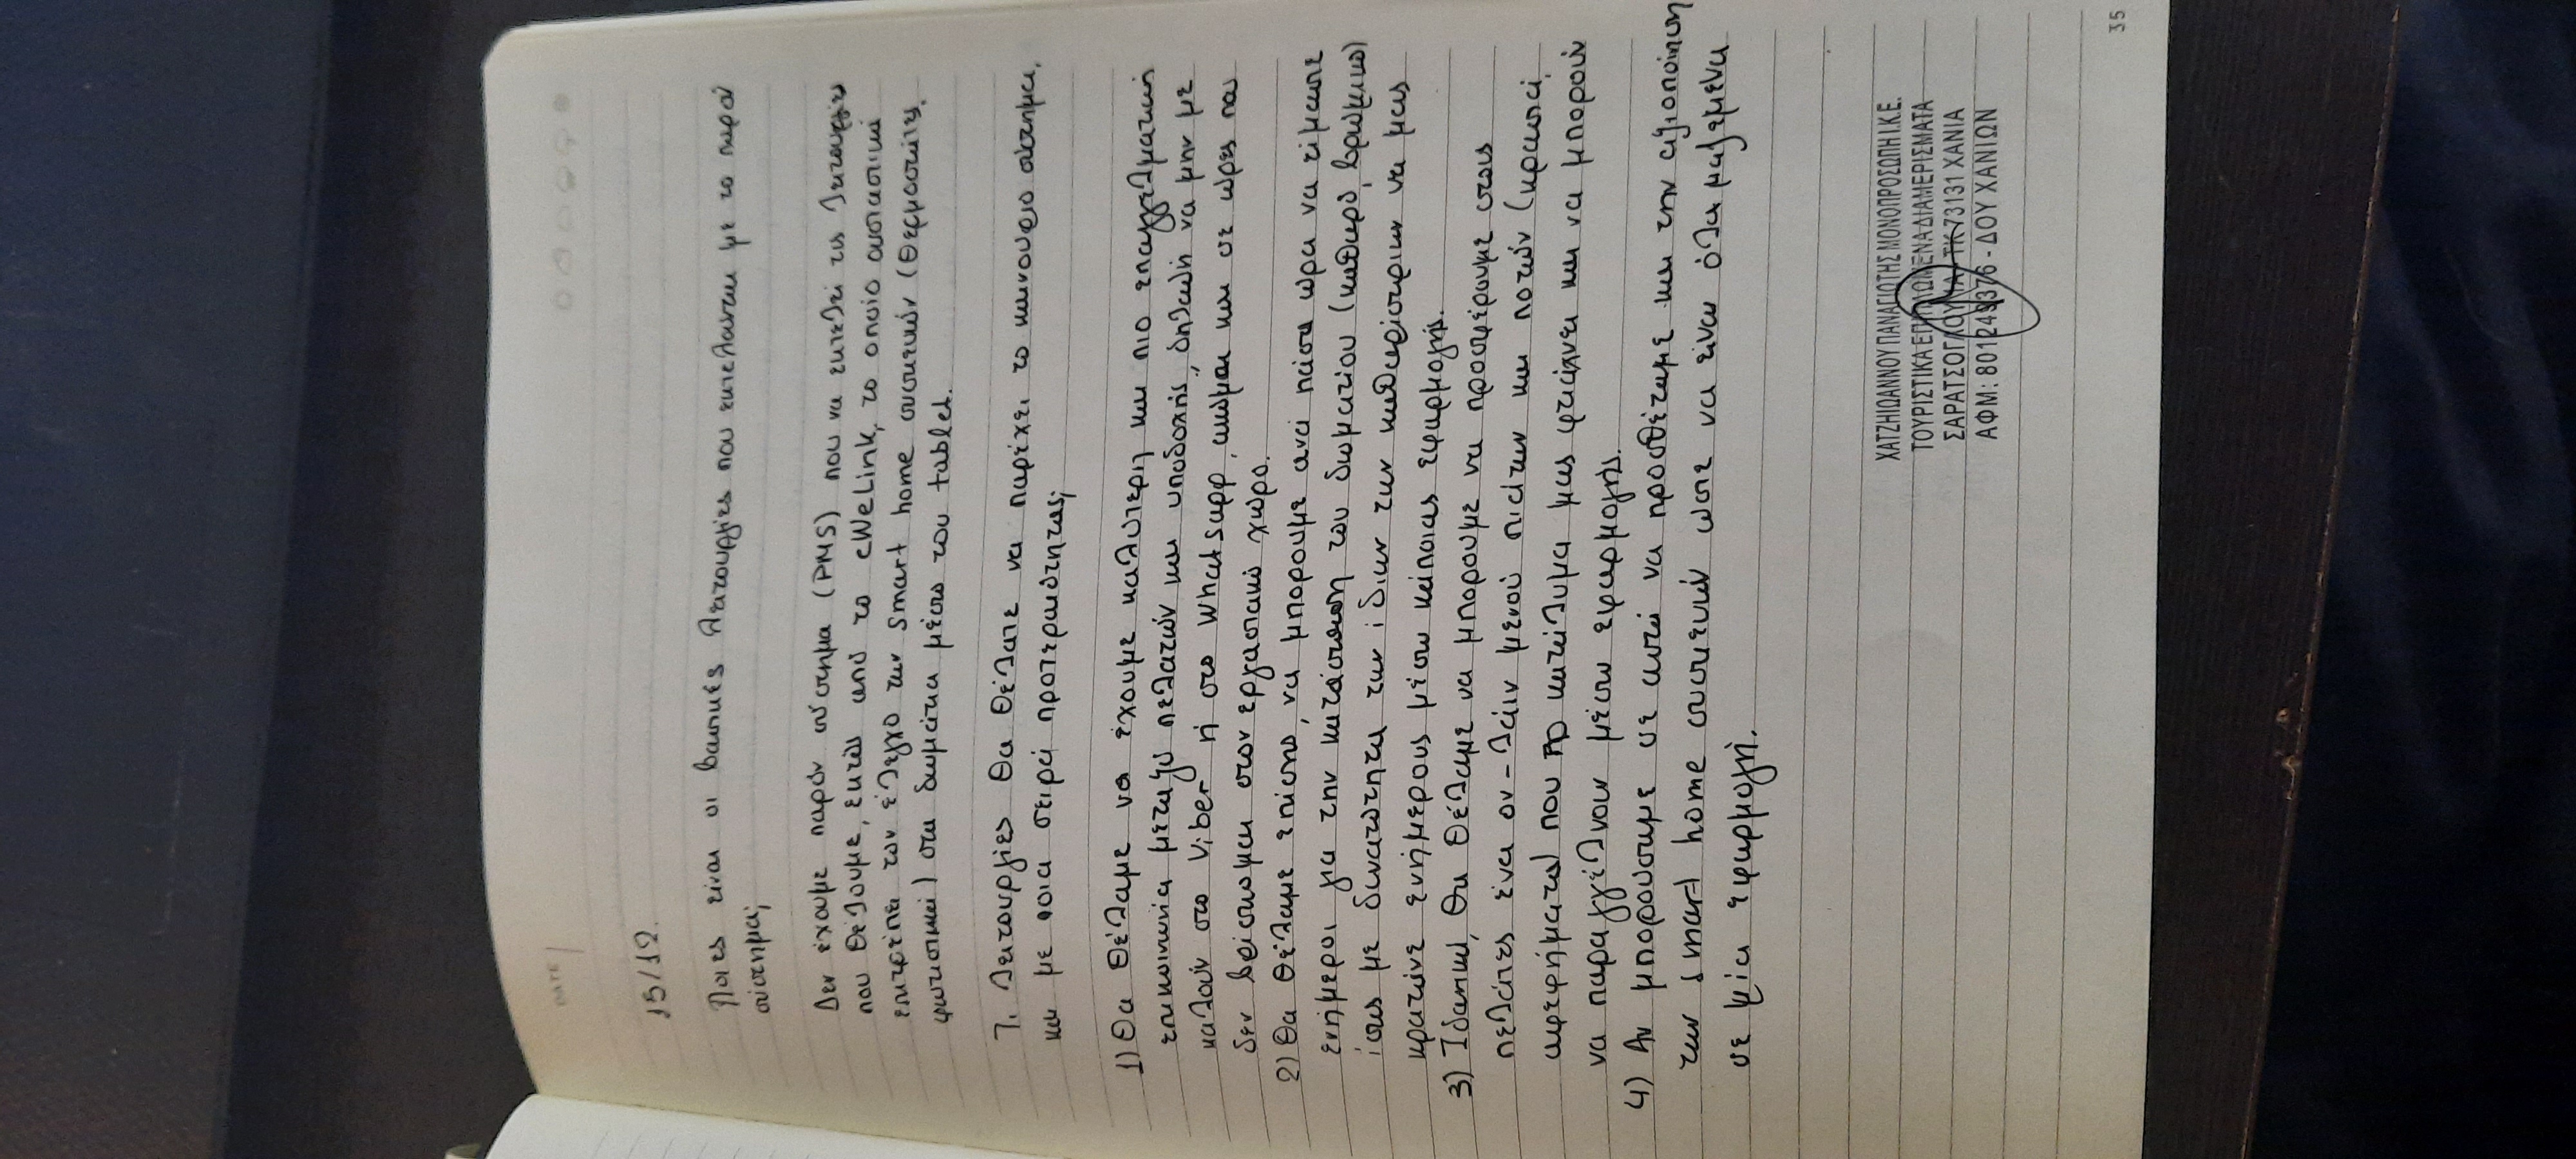 DATE
15/12.
Ποιες είναι οι βασικές λειτουργίες που εκτελούνται με το παρόν
σύστημα;
Δεν έχουμε παρόν σύστημα (PMS) που να εκτελεί τις λειτουργίες
που θέλουμε, εκτός από το eWeLink, το οποίο ουσιαστικά
επιτρέπει τον έλεγχο των smart home συσκευών (θερμοστάτες,
φωτιστικά) στα δωμάτια μέσω του tablet.
Τι λειτουργίες θα θέλατε να παρέχει το καινούριο σύστημα,
και με ποια σειρά προτεραιότητας;
1) Θα θέλαμε να έχουμε καλύτερη και πιο επαγγελματική
επικοινωνία μεταξύ πελατών και υποδοχής, δηλαδή να μην με
καλούν στο Viber ή στο Whatsapp, ακόμαι και σε ώρες που
δεν βρίσκομαι στον εργασιακό χώρο.
2) Θα θέλαμε επίσης, να μπορουμε ανά πάσα ώρα να είμαστε
ενήμεροι για την κατάσταση του δωματίου (καθαρό, βρώμικο)
ίσως με δυνατότητα των ίδιων των καθαρίστριων να μας
κρατάνε ενήμερους μέσω κάποιας εφαρμογής.
3) Ιδανικά, θα θέλαμε να μπορουμε να προσφέρουμε στους
πελάτες ένα ον-λάιν μενού πιάτων και ποτών (κρασιά,
αφεψήματα) που το κατάλυμα μας φτιάχνει και να μπορούν
να παραγγέλνουν μέσω εφαρμογής.
4) Αν μπορούσαμε σε αυτό να προσθέταμε και την αξιοποίηση
των smart home συσκευών ώστε να είναι όλα μαζεμένα
σε μία εφαρμογή.
ΧΑΤΖΗΙΩΑΝΝΟΥ ΠΑΝΑΓΙΩΤΗΣ ΜΟΝΟΠΡΟΣΩΠΗ Ι.Κ.Ε.
ΤΟΥΡΙΣΤΙΚΑ ΕΠΙΠΛΩΜΕΝΑ ΔΙΑΜΕΡΙΣΜΑΤΑ
ΣΑΡΑΤΣΟΓΛΟΥ 1Α - ΤΚ 73131 ΧΑΝΙΑ
ΑΦΜ: 801249376 - ΔΟΥ ΧΑΝΙΩΝ
35